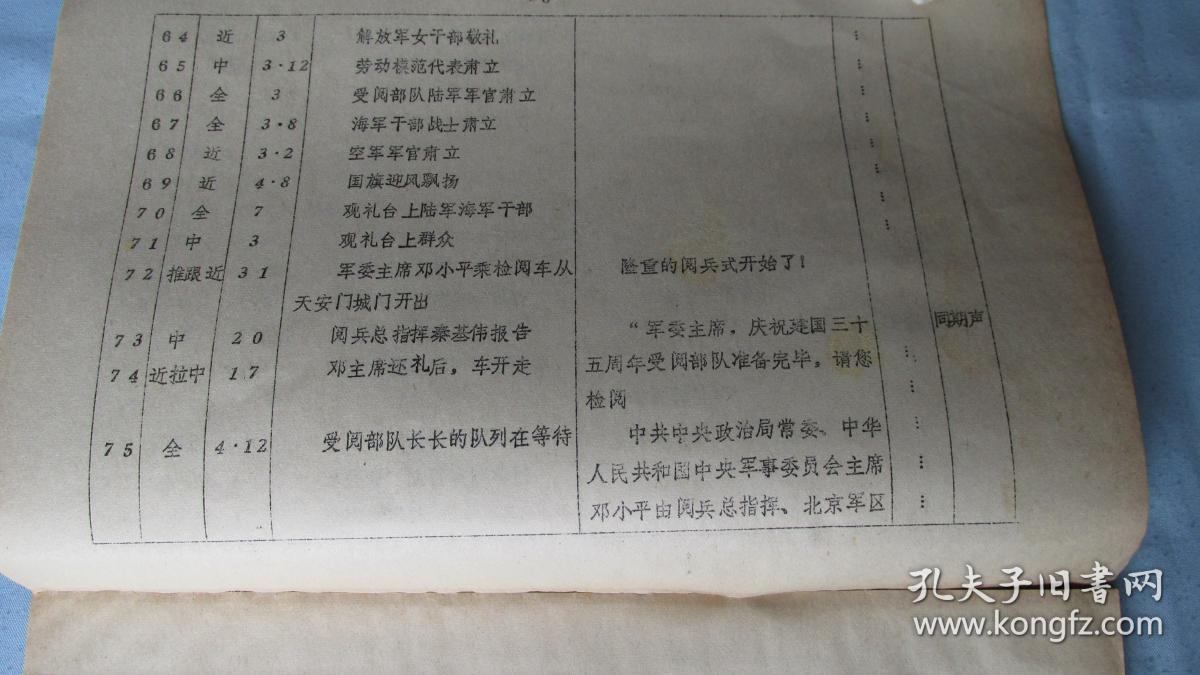 64 近 3 解放军女干部敬礼 …
65 中 3·12 劳动模范代表肃立 …
66 全 3 受阅部队陆军军官肃立 …
67 全 3·8 海军干部战士肃立 …
68 近 3·2 空军军官肃立 …
69 近 4·8 国旗迎风飘扬 …
70 全 7 观礼台上陆军海军干部 …
71 中 3 观礼台上群众
72 推跟近 31 军委主席邓小平乘检阅车从 隆重的阅兵式开始了！
天安门城门开出
73 中 20 阅兵总指挥秦基伟报告 “军委主席，庆祝建国三十 同期声
74 近拉中 17 邓主席还礼后，车开走 五周年受阅部队准备完毕，请您 …
检阅 …
75 全 4·12 受阅部队长长的队列在等待 中共中央政治局常委、中华 …
人民共和国中央军事委员会主席 …
邓小平由阅兵总指挥、北京军区 …
孔夫子旧书网
www.kongfz.com